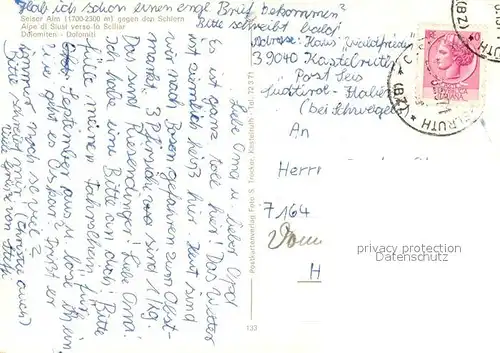 Hab ich schon einen engl. Brief bekommen?
Bitte schreibt bald!
Seiser Alm (1700-2300 m) gegen den Schlern
Alpe di Siusi verso lo Sciliar
Dolomiten - Dolomiti
Adresse: Haus "Waldfriede"
39040 Kastelruth
Post Seis
Südtirol - Italien
(bei Schweigel
An
Herrn
7164
H
Liebe Oma u. lieber Opa!
Es ist ganz tolle hier! Das Wetter
ist ziemlich heiß hier. Jetzt sind
wir nach Bozen gefahren zum Obst-
markt. 3 Pfirsiche sind 1 kg.
Das sind Riesendinger! Liebe Oma!
Ich habe eine Bitte an dich! Bitte
fülle meinen Fahrschein für
September aus! Ich hole ihn
Wie geht es Opa? Trinkt er
immer noch so viel?
schreibt mir (Christa auch)
Viele Grüße von
Postkartenverlag Foto S. Trocker, Kastelruth - Tel. 72 3 71
133
CASTELRUTH (BZ)
privacy protection
Datenschutz